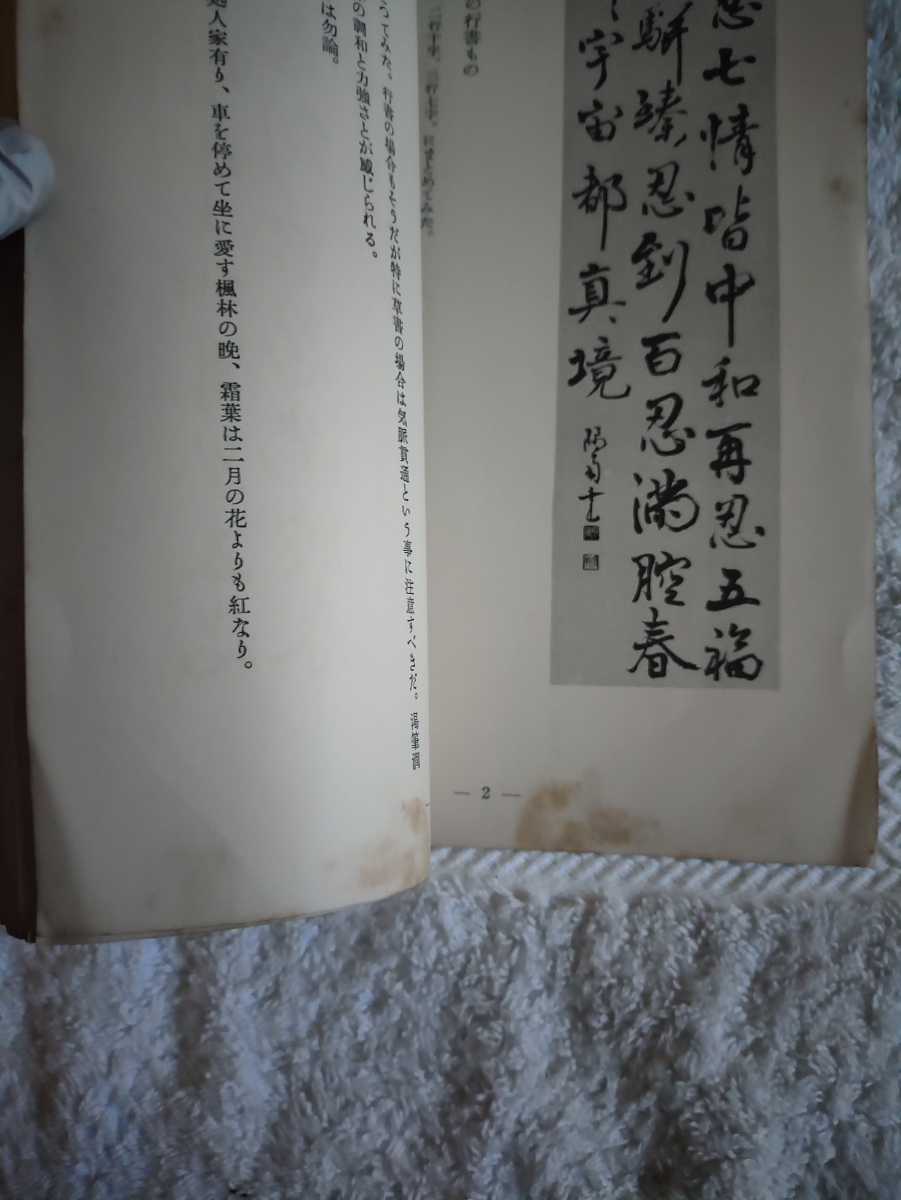 忍七情皆中和再忍五福
駢臻忍到百忍満腔春
宇宙都真境
の行書もの
二行十字、三行七字、
めてみた。
— 2 —
つてみた。行書の場合もそうだが特に草書の場合は気脈貫通という事に注意すべきだ。渇筆潤
の調和と力強さとが感じられる。
は勿論。
処人家有り、車を停めて坐に愛す楓林の晩、霜葉は二月の花よりも紅なり。